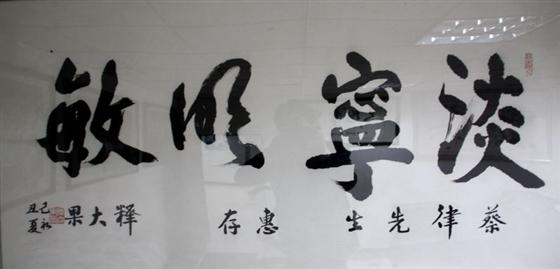 淡寧明敏
蔡律先生 惠存 釋大果
己丑
初夏